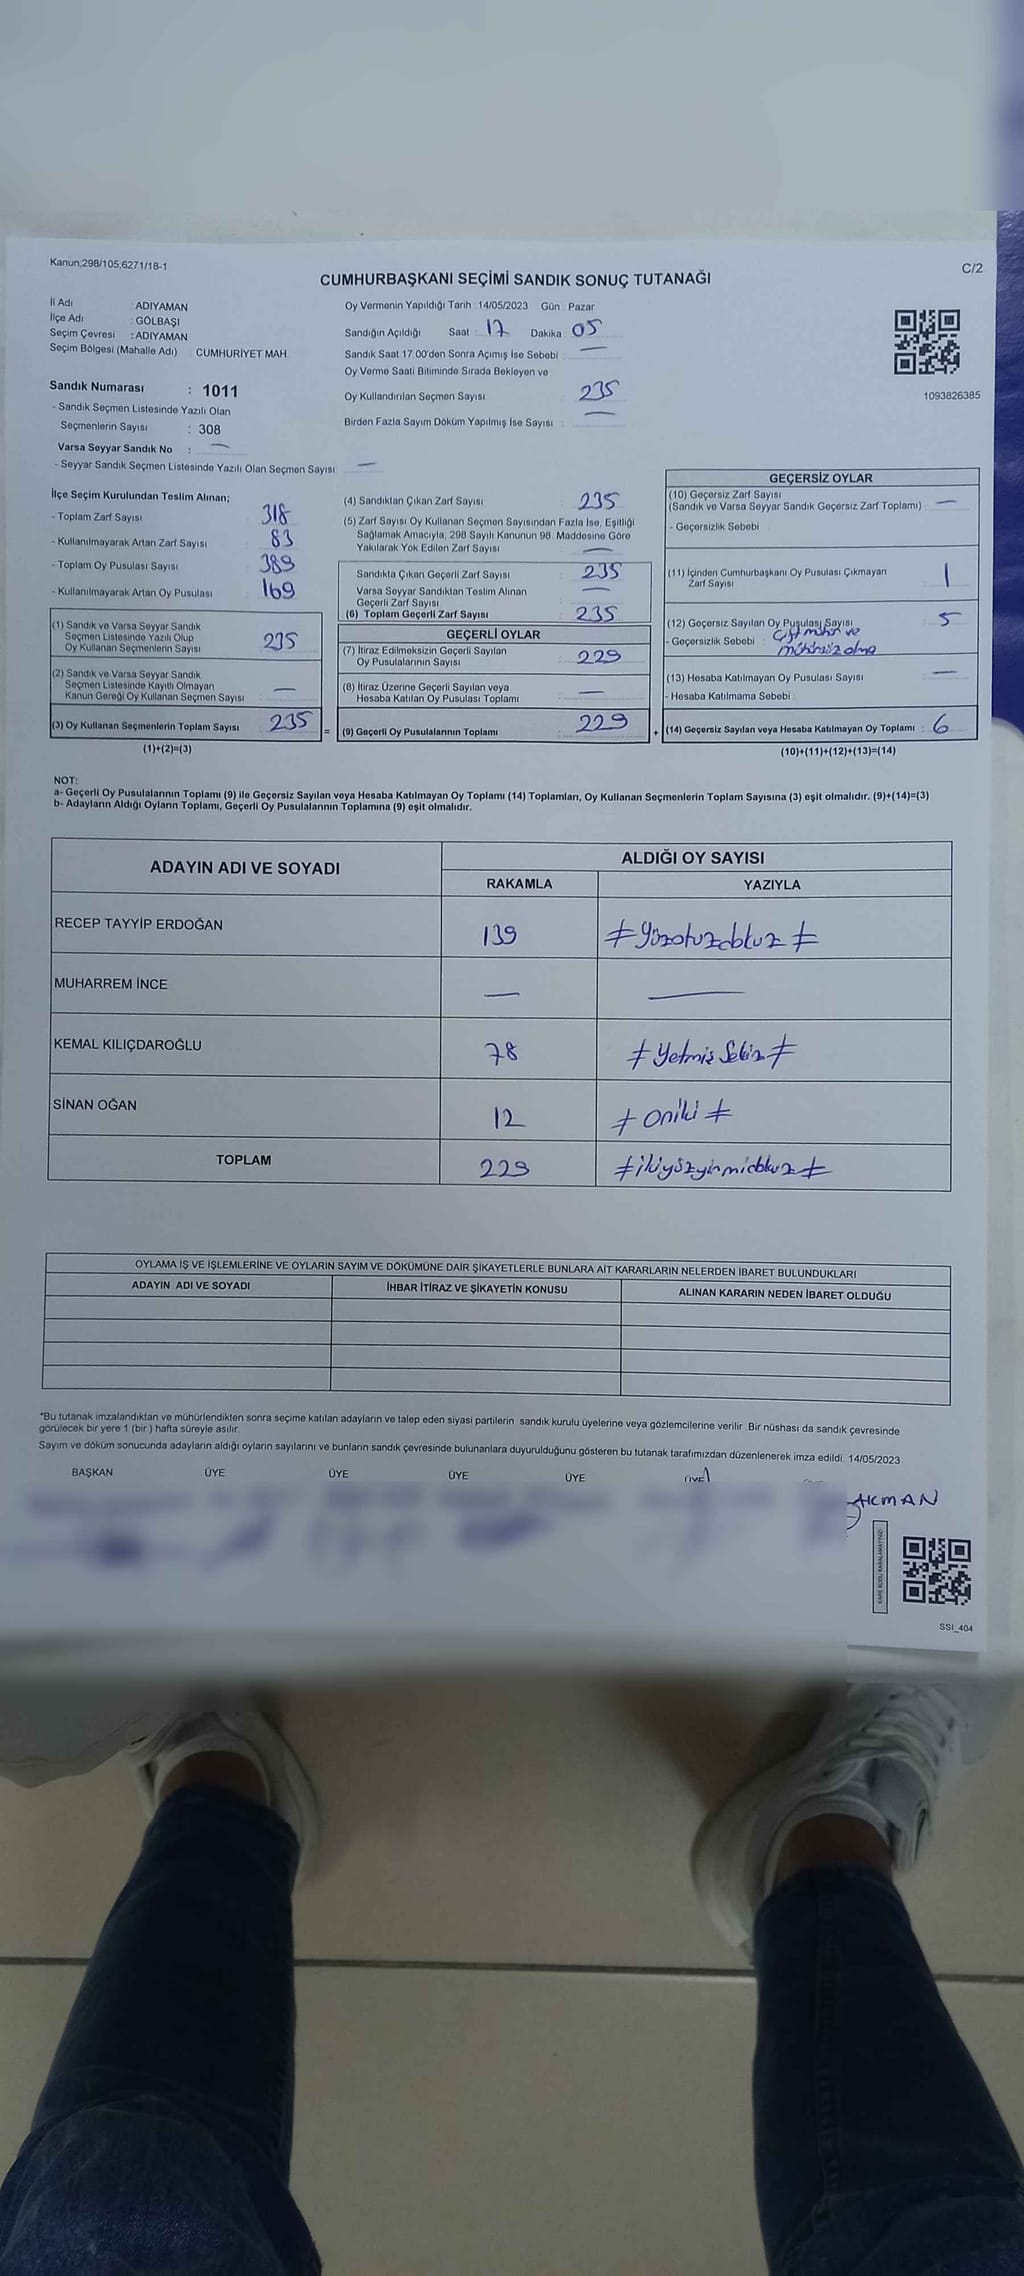 Kanun;298/105,6271/18-1
C/2
CUMHURBAŞKANI SEÇİMİ SANDIK SONUÇ TUTANAĞI
İl Adı : ADIYAMAN
İlçe Adı : GÖLBAŞI
Seçim Çevresi : ADIYAMAN
Seçim Bölgesi (Mahalle Adı) CUMHURİYET MAH
Sandık Numarası : 1011
- Sandık Seçmen Listesinde Yazılı Olan
Seçmenlerin Sayısı : 308
Varsa Seyyar Sandık No : —
- Seyyar Sandık Seçmen Listesinde Yazılı Olan Seçmen Sayısı —
Oy Vermenin Yapıldığı Tarih : 14/05/2023 Gün : Pazar
Sandığın Açıldığı Saat : 17 Dakika : 05
Sandık Saat 17.00'den Sonra Açımış İse Sebebi : —
Oy Verme Saati Bitiminde Sırada Bekleyen ve
Oy Kullandırılan Seçmen Sayısı : 235
Birden Fazla Sayım Döküm Yapılmış İse Sayısı : —
1093826385
İlçe Seçim Kurulundan Teslim Alınan;
- Toplam Zarf Sayısı : 318
- Kullanılmayarak Artan Zarf Sayısı : 83
- Toplam Oy Pusulası Sayısı : 389
- Kullanılmayarak Artan Oy Pusulası : 169
(1) Sandık ve Varsa Seyyar Sandık
Seçmen Listesinde Yazılı Olup
Oy Kullanan Seçmenlerin Sayısı : 235
(2) Sandık ve Varsa Seyyar Sandık
Seçmen Listesinde Kayıtlı Olmayan
Kanun Gereği Oy Kullanan Seçmen Sayısı : —
(3) Oy Kullanan Seçmenlerin Toplam Sayısı : 235
(1)+(2)=(3)
(4) Sandıktan Çıkan Zarf Sayısı : 235
(5) Zarf Sayısı Oy Kullanan Seçmen Sayısından Fazla İse, Eşitliği
Sağlamak Amacıyla, 298 Sayılı Kanunun 98. Maddesine Göre
Yakılarak Yok Edilen Zarf Sayısı : —
Sandıkta Çıkan Geçerli Zarf Sayısı : 235
Varsa Seyyar Sandıktan Teslim Alınan
Geçerli Zarf Sayısı : —
(6) Toplam Geçerli Zarf Sayısı : 235
GEÇERLİ OYLAR
(7) İtiraz Edilmeksizin Geçerli Sayılan
Oy Pusulalarının Sayısı : 229
(8) İtiraz Üzerine Geçerli Sayılan veya
Hesaba Katılan Oy Pusulası Toplamı : —
= (9) Geçerli Oy Pusulalarının Toplamı : 229
GEÇERSİZ OYLAR
(10) Geçersiz Zarf Sayısı
(Sandık ve Varsa Seyyar Sandık Geçersiz Zarf Toplamı) : —
- Geçersizlik Sebebi :
(11) İçinden Cumhurbaşkanı Oy Pusulası Çıkmayan
Zarf Sayısı : 1
(12) Geçersiz Sayılan Oy Pusulası Sayısı : 5
- Geçersizlik Sebebi : Çift mühür ve
mühürsüz olma
(13) Hesaba Katılmayan Oy Pusulası Sayısı : —
- Hesaba Katılmama Sebebi :
+ (14) Geçersiz Sayılan veya Hesaba Katılmayan Oy Toplamı : 6
(10)+(11)+(12)+(13)=(14)
NOT:
a- Geçerli Oy Pusulalarının Toplamı (9) ile Geçersiz Sayılan veya Hesaba Katılmayan Oy Toplamı (14) Toplamları, Oy Kullanan Seçmenlerin Toplam Sayısına (3) eşit olmalıdır. (9)+(14)=(3)
b- Adayların Aldığı Oyların Toplamı, Geçerli Oy Pusulalarının Toplamına (9) eşit olmalıdır.
ADAYIN ADI VE SOYADI ALDIĞI OY SAYISI
RAKAMLA YAZIYLA
RECEP TAYYİP ERDOĞAN 139 ≠ yüzotuzdokuz ≠
MUHARREM İNCE — —
KEMAL KILIÇDAROĞLU 78 ≠ Yetmiş Sekiz ≠
SİNAN OĞAN 12 ≠ oniki ≠
TOPLAM 229 ≠ ikiyüzyirmidokuz ≠
OYLAMA İŞ VE İŞLEMLERİNE VE OYLARIN SAYIM VE DÖKÜMÜNE DAİR ŞİKAYETLERLE BUNLARA AİT KARARLARIN NELERDEN İBARET BULUNDUKLARI
ADAYIN ADI VE SOYADI İHBAR İTİRAZ VE ŞİKAYETİN KONUSU ALINAN KARARIN NEDEN İBARET OLDUĞU
*Bu tutanak imzalandıktan ve mühürlendikten sonra seçime katılan adayların ve talep eden siyasi partilerin sandık kurulu üyelerine veya gözlemcilerine verilir. Bir nüshası da sandık çevresinde
görülecek bir yere 1 (bir ) hafta süreyle asılır.
Sayım ve döküm sonucunda adayların aldığı oyların sayılarını ve bunların sandık çevresinde bulunanlara duyurulduğunu gösteren bu tutanak tarafımızdan düzenlenerek imza edildi. 14/05/2023
BAŞKAN ÜYE ÜYE ÜYE ÜYE ÜYE
AKMAN
KARE KODU KARALAMAYINIZ!
SSI_404